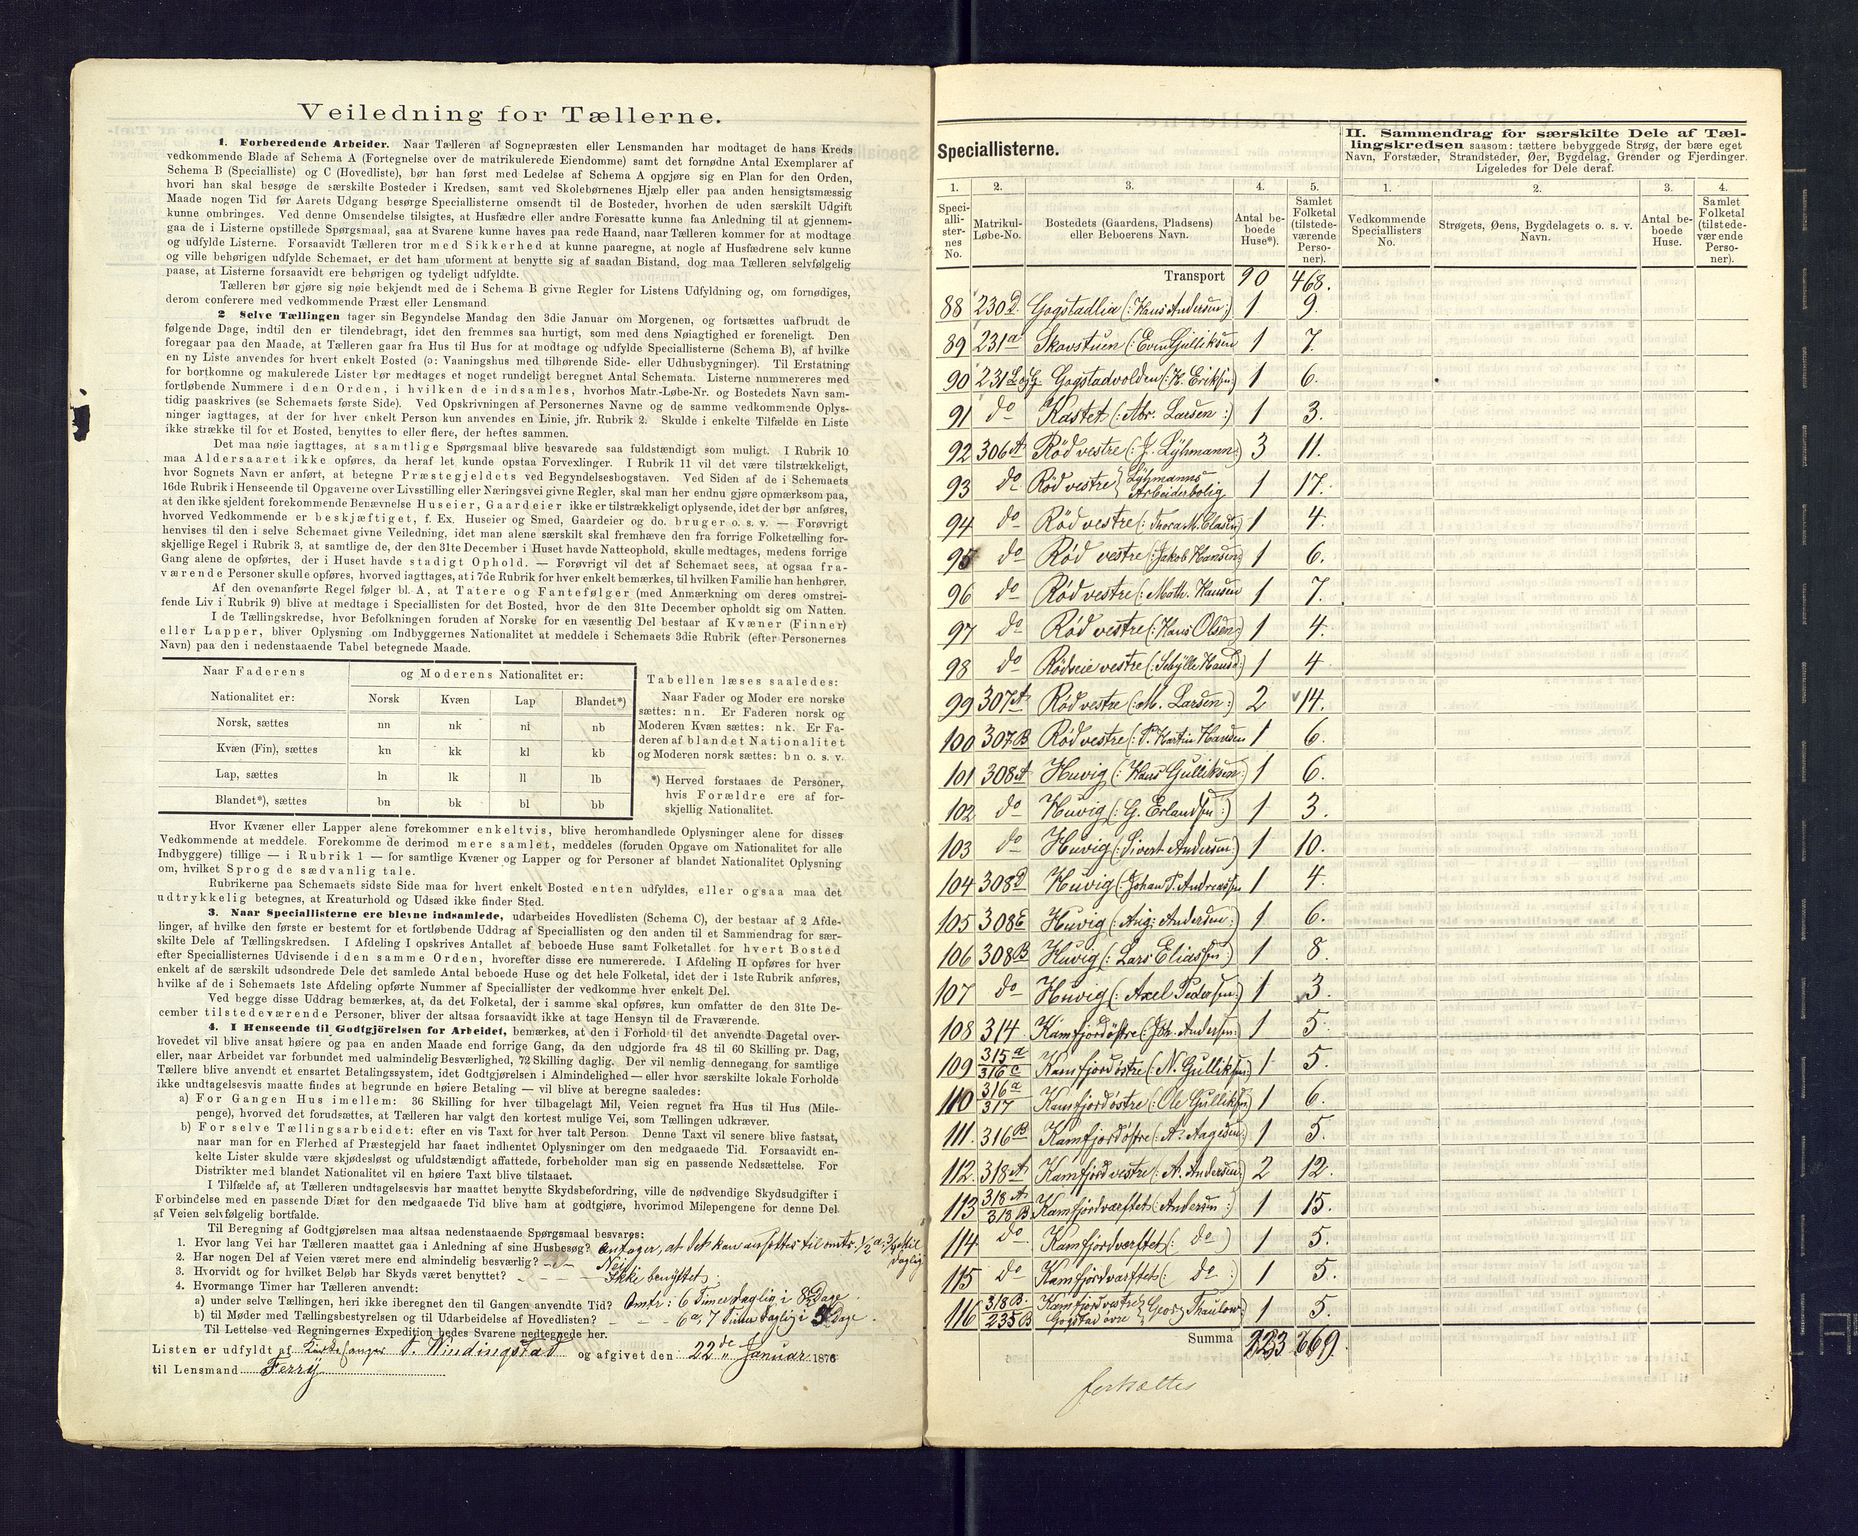 Veiledning for Tællerne.
1. Forberedende Arbeider. Naar Tælleren af Sognepræsten eller Lensmanden har modtaget de hans Kreds
vedkommende Blade af Schema A (Fortegnelse over de matrikulerede Eiendomme) samt det fornødne Antal Exemplarer af
Schema B (Specialliste) og C (Hovedliste), bør han først med Ledelse af Schema A opgjøre sig en Plan for den Orden,
hvori han skal besøge de særskilte Bosteder i Kredsen, samt ved Skolebørnenes Hjælp eller paa anden hensigtsmæssig
Maade nogen Tid før Aarets Udgang besørge Speciallisterne omsendt til de Bosteder, hvorhen de uden særskilt Udgift
kunne ombringes. Ved denne Omsendelse tilsigtes, at Husfædre eller andre Foresatte kunne faa Anledning til at gjennem-
gaa de i Listerne opstillede Spørgsmaal, saa at Svarene kunne haves paa rede Haand, naar Tælleren kommer for at modtage
og udfylde Listerne. Forsaavidt Tælleren tror med Sikkerhed at kunne paaregne, at nogle af Husfædrene selv kunne
og ville behørigen udfylde Schemaet, er det ham uforment at benytte sig af saadan Bistand, dog maa Tælleren selvfølgelig
paase, at Listerne forsaavidt ere behørigen og tydeligt udfyldte.
Tælleren bør gjøre sig nøie bekjendt med de i Schema B givne Regler for Listens Udfyldning og, om fornødiges,
derom conferere med vedkommende Præst eller Lensmand
2 Selve Tællingen tager sin Begyndelse Mandag den 3die Januar om Morgenen, og fortsættes uafbrudt de
følgende Dage, indtil den er tilendebragt, idet den fremmes saa hurtigt, som med dens Nøiagtighed er foreneligt. Den
foregaar paa den Maade, at Tælleren gaar fra Hus til Hus for at modtage og udfylde Speciallisterne (Schema B), af hvilke
en ny Liste anvendes for hvert enkelt Bosted (ɔ: Vaaningshus med tilhørende Side- eller Udhusbygninger). Til Erstatning
for bortkomne og makulerede Lister bør medtages et noget rundeligt beregnet Antal Schemata. Listerne nummereres med
fortløbende Nummere i den Orden, i hvilken de indsamles, hvorhos Matr.-Løbe-Nr. og Bostedets Navn sam-
tidig paaskrives (se Schemaets første Side). Ved Opskrivningen af Personernes Navne og de samme vedkommende Oplys-
ninger iagttages, at der for hver enkelt Person kun anvendes en Linie, jfr. Rubrik 2. Skulde i enkelte Tilfælde en Liste
ikke strække til for et Bosted, benyttes to eller flere, der heftes sammen.
Det maa nøie iagttages, at samtlige Spørgsmaal blive besvarede saa fuldstændigt som muligt. I Rubrik 10
maa Aldersaaret ikke opføres, da heraf let kunde opstaa Forvexlinger. I Rubrik 11 vil det være tilstrækkeligt,
hvor Sognets Navn er anført, at betegne Præstegjeldets ved Begyndelsesbogstaven. Ved Siden af de i Schemaets
16de Rubrik i Henseende til Opgaverne over Livsstilling eller Næringsvei givne Regler, skal man her endnu gjøre opmærksom paa,
at den ikke sjeldent forekommende Benævnelse Huseier, Gaardeier ikke er tilstrækkeligt oplysende, idet der bør anføres,
hvorved Vedkommende er beskjæftiget, f. Ex. Huseier og Smed, Gaardeier og do. bruger o. s. v. — Forøvrigt
henvises til den i selve Schemaet givne Veiledning, idet man alene særskilt skal fremhæve den fra forrige Folketælling for-
skjellige Regel i Rubrik 3, at samtlige, de, der den 31te December i Huset havde Natteophold, skulle medtages, medens forrige
Gang alene de opførtes, der i Huset havde stadigt Ophold. — Forøvrigt vil det af Schemaet sees, at ogsaa fra-
værende Personer skulle opføres, hvorved iagttages, at i 7de Rubrik for hver enkelt bemærkes, til hvilken Familie han henhører.
Af den ovenanførte Regel følger bl. A, at Tatere og Fantefølger (med Anmærkning om deres omstrei-
fende Liv i Rubrik 9) blive at medtage i Speciallisten for det Bosted, hvor de den 31te December opholdt sig om Natten.
I de Tællingskredse, hvor Befolkningen foruden af Norske for en væsentlig Del bestaar af Kvæner (Finner)
eller Lapper, bliver Oplysning om Indbyggernes Nationalitet at meddele i Schemaets 3die Rubrik (efter Personernes
Navn) paa den i nedenstaaende Tabel betegnede Maade.
Naar Faderens Nationalitet er: og Moderens Nationalitet er:
Norsk Kvæn Lap Blandet*)
Norsk, sættes nn nk nl nb
Kvæn (Fin), sættes kn kk kl kb
Lap, sættes ln lk ll lb
Blandet*), sættes bn bk bl bb
Tabellen læses saaledes:
Naar Fader og Moder ere norske
sættes: nn. Er Faderen norsk og
Moderen Kvæn sættes: nk. Er Fa-
deren af blandet Nationalitet
og Moderen norsk sættes: bn o. s. v.
*) Herved forstaaes de Personer,
hvis Forældre ere af for-
skjellig Nationalitet.
Hvor Kvæner eller Lapper alene forekommer enkeltvis, blive heromhandlede Oplysninger alene for disses
Vedkommende at meddele. Forekomme de derimod mere samlet, meddeles (foruden Opgave om Nationalitet for alle
Indbyggere) tillige — i Rubrik 1 — for samtlige Kvæner og Lapper og for Personer af blandet Nationalitet Oplysning
om, hvilket Sprog de sædvanlig tale.
Rubrikerne paa Schemaets sidste Side maa for hvert enkelt Bosted enten udfyldes, eller ogsaa maa det
udtrykkelig betegnes, at Kreaturhold og Udsæd ikke finder Sted.
3. Naar Speciallisterne ere blevne indsamlede, udarbeides Hovedlisten (Schema C), der bestaar af 2 Afde-
linger, af hvilke den første er bestemt for et fortløbende Uddrag af Speciallisten og den anden til et Sammendrag for sær-
skilte Dele af Tællingskredsen. I Afdeling I opskrives Antallet af beboede Huse samt Folketallet for hvert Bosted
efter Speciallisternes Udvisende i den samme Orden, hvorefter disse ere numererede. I Afdeling II opføres for hver
enkelt af de særskilt udsondrede Dele det samlede Antal beboede Huse og det hele Folketal, idet der i 1ste Rubrik anføres,
hvilke af de i Schemaets 1ste Afdeling opførte Nummer af Speciallister der vedkomme hver enkelt Del.
Ved begge disse Uddrag bemærkes, at, da det Folketal, der i samme skal opføres, kun omfatter de den 31te De-
cember tilstedeværende Personer, bliver der altsaa forsaavidt ikke at tage Hensyn til de Fraværende.
4. I Henseende til Godtgjörelsen for Arbeidet, bemærkes, at den i Forhold til det anvendte Dagetal over-
hovedet vil blive ansat høiere og paa en anden Maade end forrige Gang, da den udgjorde fra 48 til 60 Skilling pr. Dag,
eller, naar Arbeidet var forbundet med ualmindelig Besværlighed, 72 Skilling daglig. Der vil nemlig dennegang for samtlige
Tællere blive anvendt et ensartet Betalingssystem, idet Godtgjörelsen i Almindelighed — eller hvor særskilte lokale Forholde
ikke undtagelsesvis maatte findes at begrunde en høiere Betaling — vil blive at beregne saaledes:
a) For Gangen Hus imellem: 36 Skilling for hver tilbagelagt Mil, Veien regnet fra Hus til Hus (Mile-
penge), hvorved det forudsættes, at Tælleren har valgt den korteste mulige Vei, som Tællingen udkræver.
b) For selve Tællingsarbeidet: efter en vis Taxt for hver talt Person. Denne Taxt vil senere blive fastsat,
naar man for en Flerhed af Præstegjeld har faaet indhentet Oplysninger om den medgaaede Tid. Forsaavidt en-
kelte Lister skulde være skjødesløst og ufuldstændigt affattede, forbeholder man sig en passende Nedsættelse. For
Distrikter med blandet Nationalitet vil en høiere Taxt blive tilstaaet.
I Tilfælde af, at Tælleren undtagelsesvis har maattet benytte Skydsbefordring, ville de nødvendige Skydsudgifter i
Forbindelse med en passende Diæt for den medgaaede Tid blive ham at godtgjøre, hvorimod Milepengene for denne Del
af Veien selvfølgelig bortfalde.
Til Beregning af Godtgjørelsen maa altsaa nedenstaaende Spørgsmaal besvares:
1. Hvor lang Vei har Tælleren maattet gaa i Anledning af sine Husbesøg? Antager, at det kan ansættes til omtr. 1/2 a 3/4 Mil daglig
2. Har nogen Del af Veien været mere end almindelig besværlig? Nei
3. Hvorvidt og for hvilket Beløb har Skyds været benyttet? Ikke benyttet.
4. Hvormange Timer har Tælleren anvendt:
a) under selve Tællingen, heri ikke iberegnet den til Gangen anvendte Tid? Omtr: 6 Timer daglig i 8 1/2 Dage.
b) til Møder med Tællingsbestyrelsen og til Udarbeidelse af Hovedlisten? 6 a 7 Timer daglig i 5 Dage.
Til Lettelse ved Regningernes Expedition bedes Svarene nedtegnede her.
Listen er udfyldt af Kirkesanger T. Windingstad og afgivet den 22de Januar 1876
til Lensmand Ferry
Speciallisterne.
II. Sammendrag for særskilte Dele af Tæl-
lingskredsen saasom: tættere bebyggede Strøg, der bære eget
Navn, Forstæder, Strandsteder, Øer, Bygdelag, Grender og Fjerdinger.
Ligeledes for Dele deraf.
1. 2. 3. 4. 5. 1. 2. 3. 4.
Speciallisternes No. Matrikul-Løbe-No. Bostedets (Gaardens, Pladsens) eller Beboerens Navn. Antal beboede Huse*). Samlet Folketal (tilstedeværende Personer).
Vedkommende Speciallisters No. Strøgets, Øens, Bygdelagets o. s. v. Navn. Antal beboede Huse. Samlet Folketal (tilstedeværende Personer).
Transport 90 468.
88 230D. Gogstadlia (: Hans Andersen :) 1 9.
89 231a Skovstuen (: Even Gulliksen 1 7.
90 231 Gogstadvolden (: H. Eriksen :) 1 6.
91 do Kastet (: Abr. Larsen :) 1 3.
92 306A Rød vestre (: J. Lÿhmann :) 3 11.
93 do Rød vestre } Lÿhmanns Arbeiderbolig 1 17.
94 do Rød vestre (: Thora M. Clasen) 1 4.
95 do Rød vestre (: Jakob Hansen :) 1 6.
96 do Rød vestre (: Math. Hansen 1 7.
97 do Rød vestre (: Hans Olsen :) 1 4.
98 do Rødseie vestre 1 4
99 307A Rød vestre (: M. Larsen :) 2 14.
100 307B Rød vestre (: P. Martin Hansen 1 6.
101 308A Huvig (: Hans Gulliksen :) 1 6.
102 do Huvig (: G. Erlandsen :) 1 3.
103 do Huvig (: Sivert Andersen :) 1 10.
104 308D Huvig (: Johan P. Andreassen 1 4.
105 308E Huvig (: Aug: Andersen :) 1 6.
106 308B Huvig (: Lars Eliassen :) 1 8.
107 do Huvig (: Axel Pedersen :) 1 3.
108 314 Kamfjord østre (: Joh. Andersen :) 1 5.
109 315a 316c Kamfjord østre (: N. Gulliksen :) 1 5.
110 316a 317 Kamfjord østre (: Ole Gulliksen 1 6.
111. 316B Kamfjord østre (: A: Aagesen :) 1 5.
112. 318A Kamfjord vestre (: A. Andersen :) 2 12.
113 318A 318B Kamfjordværftet (: Andersen :) 1 15.
114 do Kamfjordværftet (: do :) 1 5.
115 do Kamfjordværftet (: do :) 1 5.
116 318B. 235B Kamfjord vestre Gogstad øvre } Georg Thaulow 1 5.
Summa 123 669.
fortsættes